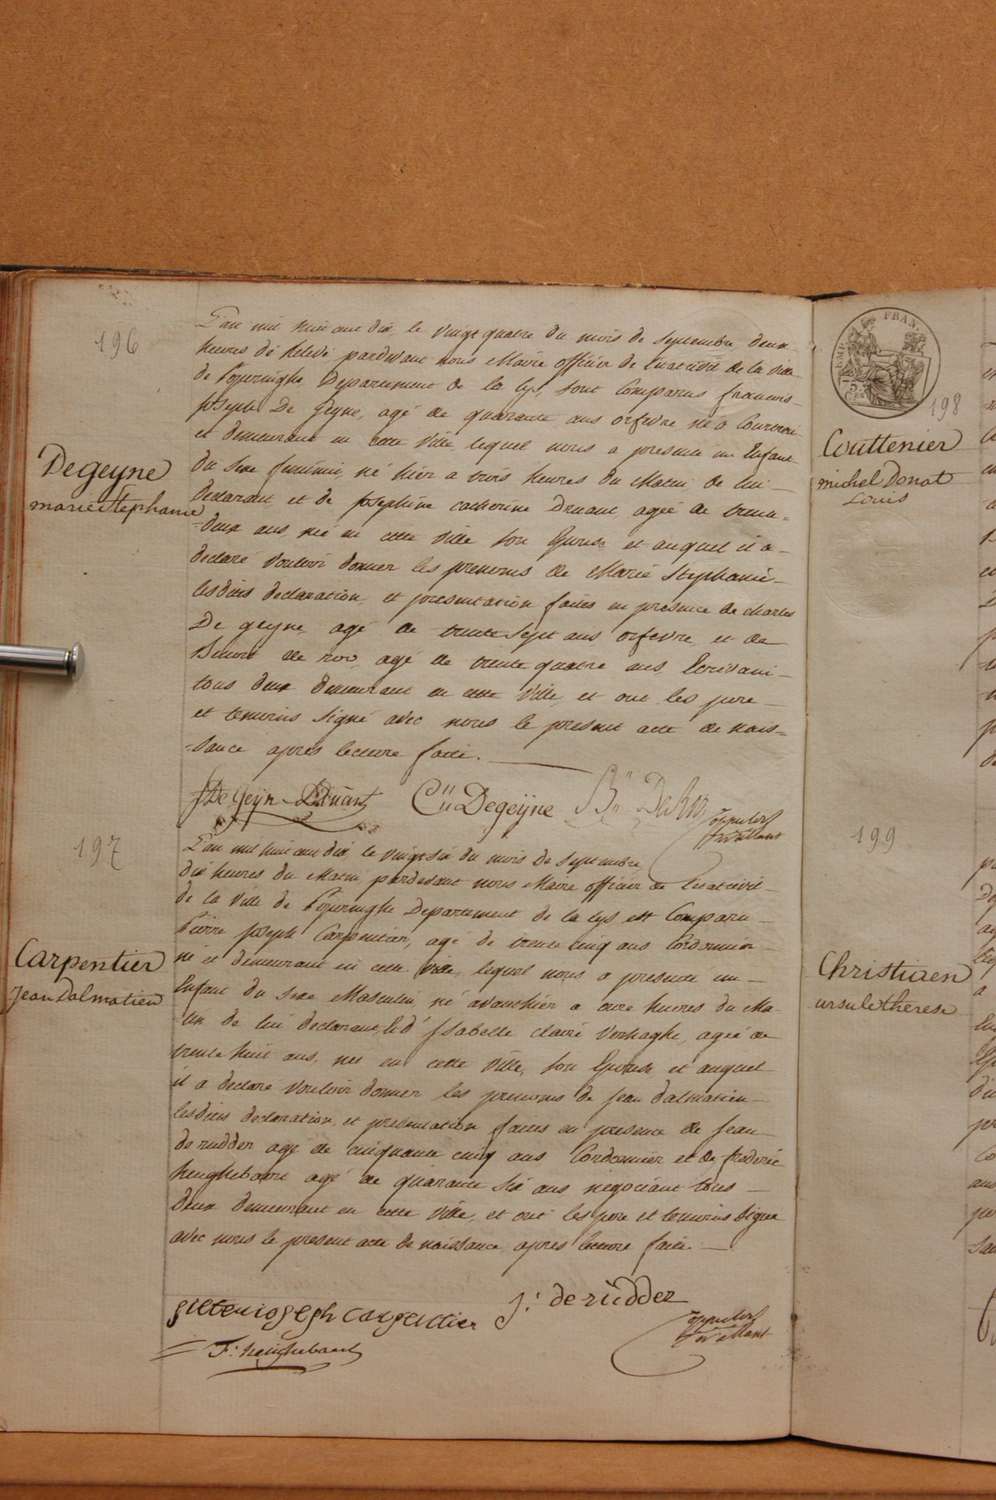 196
Degeyne
marie Stephanie
L'an mil huit cent dix le vingt quatre du mois de Septembre deux
heures de Relevé pardevant nous Maire officier de l'etat civil de la ville
de Poperinghe Departement de la Lys, sont Comparus francois
Joseph De Geyne, agé de quarante ans orfevre né a Courtrai
et demeurant en cette ville lequel nous a presenté un Enfant
du sexe feminin, né hier a trois heures du Matin de lui
declarant et de Josephine catherine Druant agée de trente
deux ans née en cette ville son Epouse et auquel il a
declaré vouloir donner les prenoms de Marie Stephanie
lesdites declaration et presentation faites en presence de charles
De geyne agé de trente sept ans orfevre et de
de roo agé de trente quatre ans Ecrivain
tous deux demeurant en cette ville, et ont les pere
et temoins signé avec nous le present acte de nais=
sance apres lecture faite.
C:n Degeijne
197
Carpentier
Jean Dalmatien
L'an mil huit cent dix le vingt six du mois de Septembre
dix heures du Matin pardevant nous Maire officier de l'etat civil
de la ville de Poperinghe Departement de la Lys est Comparu
Pierre Joseph Carpentier, agé de trente cinq ans Cordonnier
né et demeurant en cette ville, lequel nous a presenté un
Enfant du sexe Masculin, né avant hier a onze heures du Ma
tin de lui declarant, et d'Isabelle Claire Verhaghe, agée de
trente huit ans, née en cette ville, son Epouse et auquel
il a declaré vouloir donner les prenoms de Jean dalmatien
lesdites declaration et presentation faites en presence de Jean
de rudder agé de cinquante cinq ans Cordonnier et de frederic
heughebaert agé de quarante six ans negociant tous
deux demeurant en cette ville, et ont les pere et temoins signé
avec nous le present acte de naissance apres lecture faite.
pieter ioseph carpentier
J: de rüdder
F: heughebaert
FRAN.
198
Couttenier
michel Donat
Louis
199
Christiaen
ursule therese